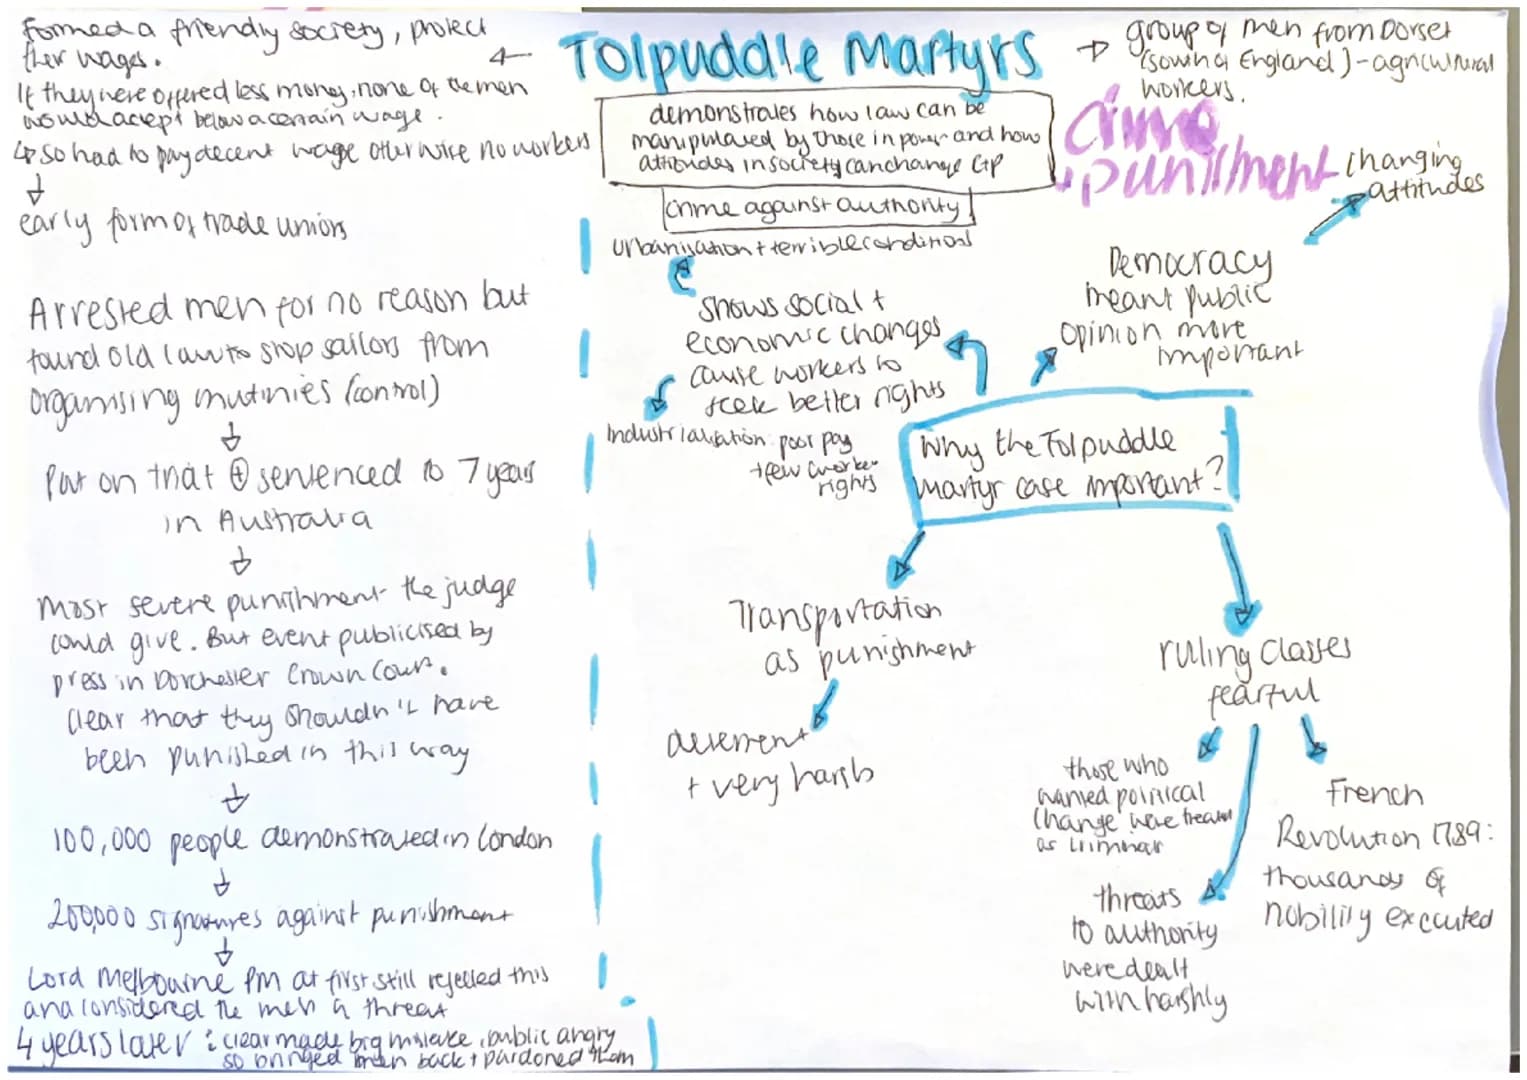 Tolpuddle Martyrs
Formed a friendly society, protect
ther wages.
If they were offered less money, none of the men
would acept below a certain wage.
↳ so had to pay decent wage otherwise no workers
↓
early form of trade unions
Arrested men for no reason but
found old law to stop sailors from
organising mutinies (control)
↓
Put on trial ⊕ sentenced to 7 years
in Australia
↓
Most severe punishment the judge
could give. But event publicised by
press in Dorchester Crown Court.
Clear that they shouldn't have
been punished in this way
↓
100,000 people demonstrated in London
↓
200,000 signatures against punishment
↓
Lord Melbourne PM at first still rejected this
and considered the men a threat
4 years later: clear made big mistake, public angry
so bringed men back + pardoned them
→ group of men from Dorset
(south of England) - agricultural
workers.
demonstrates how law can be
manipulated by those in power and how
attitudes in society can change C+P
crime against authority
crime
+ punishment
urbanisation + terrible conditions
shows social +
economic changes
cause workers to
seek better rights
Industrialisation: poor pay
+ few worker
rights
changing
attitudes
Democracy
meant public
opinion more
important
Why the Tolpuddle
martyr case important?
Transportation
as punishment
deterrent
+ very harsh
ruling classes
fearful
those who
wanted political
change were treated
as criminal
threats
to authority
were dealt
with harshly
French
Revolution 1789:
thousands of
nobility excuted